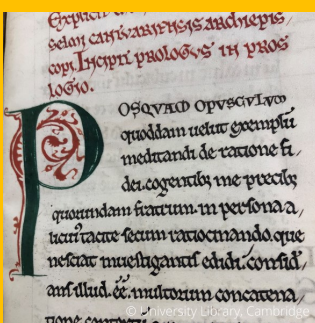 Explicit
selmi cantuariensis archiepis,
copi, Incipit prologus in pros
logio.
POSQUAM OPUSCULUM
quoddam uelut exemplū
meditandi de ratione fi,
dei, cogentibꝫ me precibꝫ
quorundam fratrum, in persona a,
licui tacite secum ratiocinando, que
nesciat inuestigantis edidi: consid,
ans illud. eē. multorum concatena,
tione
© University Library, Cambridge